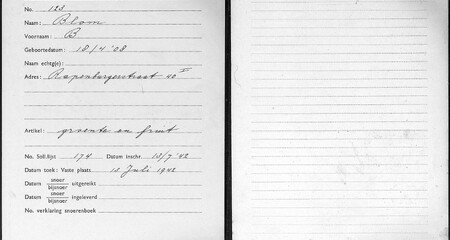 No. 123
Naam: Blom
Voornaam: B
Geboortedatum: 18/4 '08
Naam echtg(e):
Adres: Rapenburgerstraat 40 II
Artikel: groente en fruit
No. Soll.lijst 174 Datum inschr. 13/7 '42
Datum toek: Vaste plaats 15 Juli 1942
Datum snoer uitgereikt
bijsnoer
Datum snoer ingeleverd
bijsnoer
No. verklaring snoerenboek